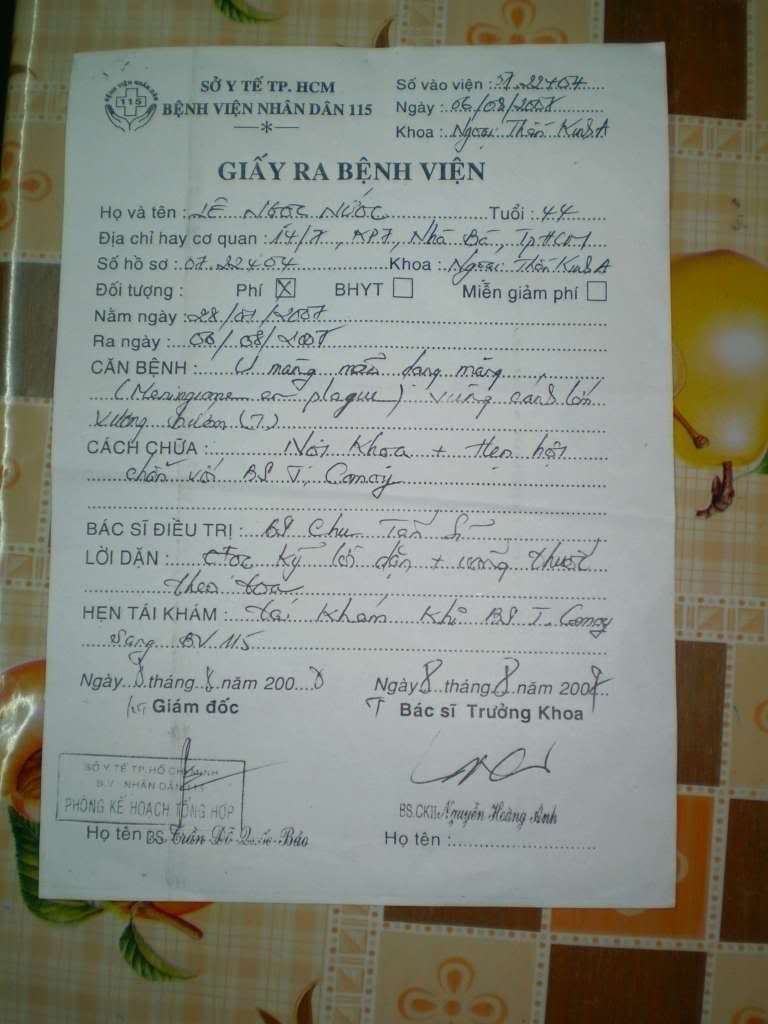 BỆNH VIỆN NHÂN DÂN
115
SỞ Y TẾ TP. HCM
BỆNH VIỆN NHÂN DÂN 115
Số vào viện : 07.22404
Ngày : 06/08/2007
Khoa : Ngoại Thần Kinh A
GIẤY RA BỆNH VIỆN
Họ và tên : LÊ NGỌC NƯỚC Tuổi : 44
Địa chỉ hay cơ quan : 14/7, KP7, Nhà Bè, TpHCM
Số hồ sơ : 07.22404 Khoa : Ngoại Thần Kinh A
Đối tượng : Phí BHYT Miễn giảm phí
Nằm ngày :
Ra ngày : 06/08/2007
CĂN BỆNH : U màng não dạng mảng
(Meningiome en plaque) vùng cánh lớn
xương bướm (T)
CÁCH CHỮA : Nội Khoa + Hẹn hội
chẩn với BS T. Conoy
BÁC SĨ ĐIỀU TRỊ : BS Chu Tấn Sĩ
LỜI DẶN : Đọc kỹ lời dặn + uống thuốc
theo toa
HẸN TÁI KHÁM : Tái khám khi BS T. Conoy
sang BV. 115
Ngày 8 tháng 8 năm 200
Giám đốc
Ngày 8 tháng 8 năm 200
Bác sĩ Trưởng Khoa
SỞ Y TẾ TP. HỒ CHÍ MINH
B.V NHÂN DÂN 115
PHÒNG KẾ HOẠCH TỔNG HỢP
Họ tên BS. Trần Đỗ Quốc Bảo
BS.CKII. Nguyễn Hoàng Anh
Họ tên :